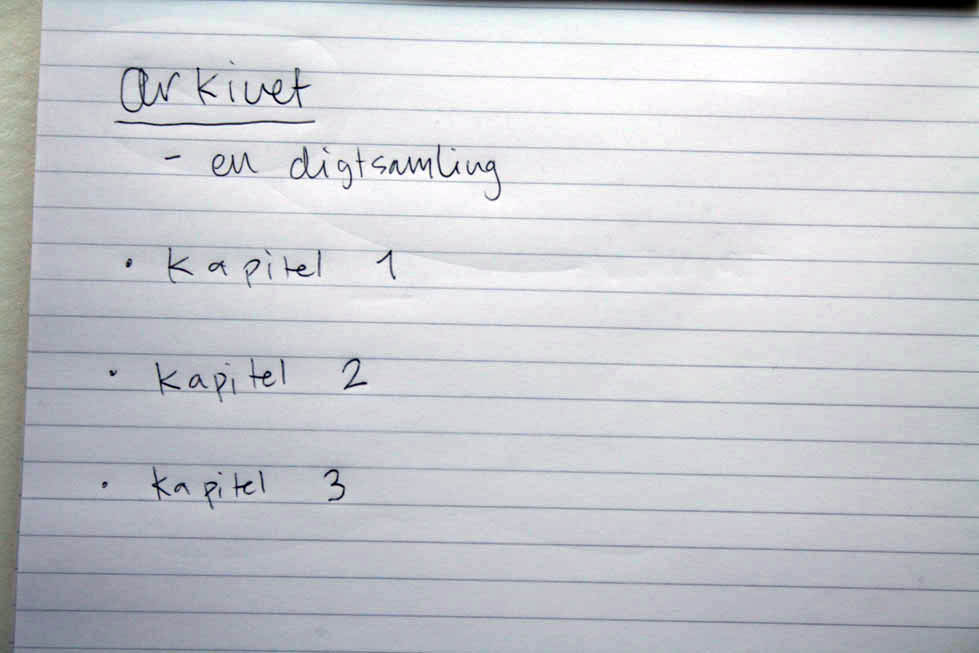 arkivet
- en digtsamling
· Kapitel 1
· Kapitel 2
· Kapitel 3